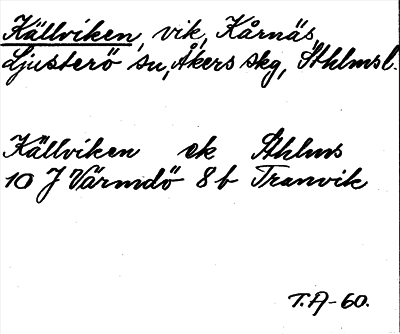 Källviken, vik, Kårnäs,
Ljusterö sn, Åkers skg, Sthlmsl.
Källviken ek Sthlms
10 J Värmdö 8 b Tranvik
T.A-60.